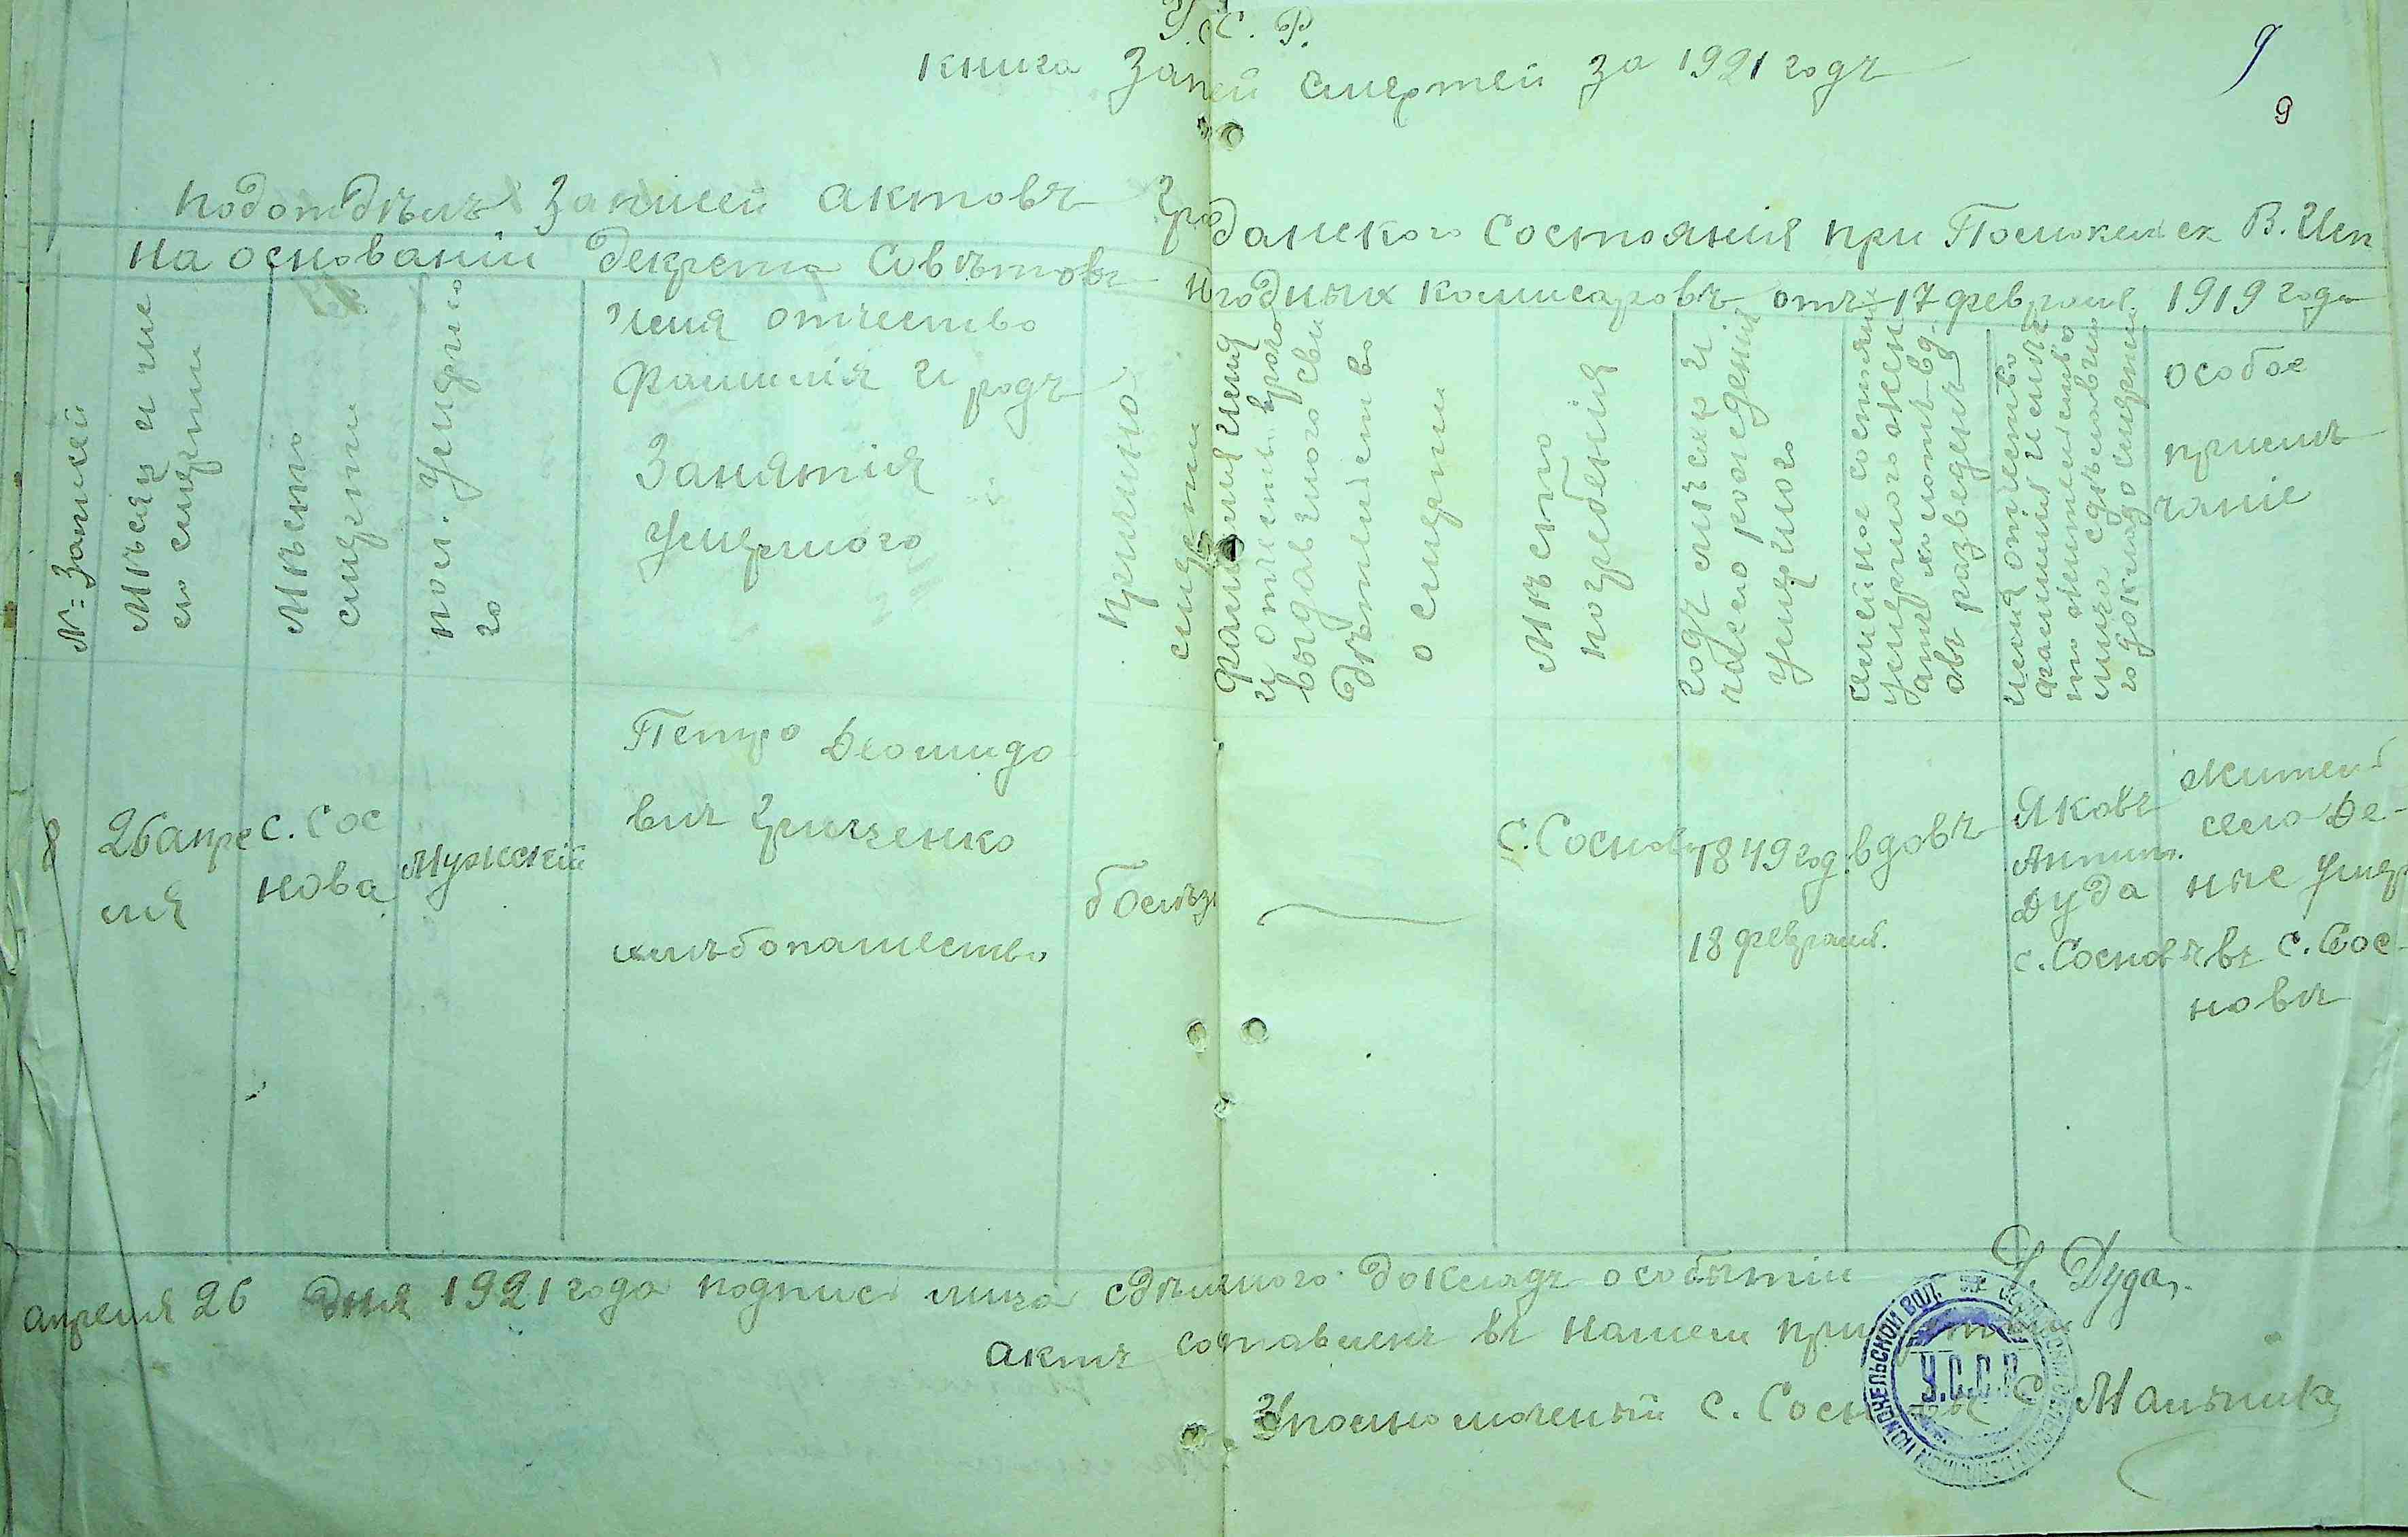 У.С.Р.
9
книга Записей смертей за 1921 годъ
9
подотдѣлъ Записей актовъ гражданского Состояния при В. Исп
На основаніи декрета Совѣтовъ Народных комисаровъ отъ 17 февраля 1919 года
№ Записей
Мѣсяц и чис
ло смерти
Мѣсто
смерти
пол. Умершо
го
Имя отчество
Фамилія и родъ
Занятія
Умершого
Причина
смерти
фамилия имя
и отчество врача
выдавшого сви
дѣтельство
о смерти
Мѣсто
погребенія
годъ мѣсяц и
число рождения
Умершого
семейное состояние
умершого жен
атъ холостъ вд
овъ разведенъ
имя отчество
фамилия и мѣс
то жительства
лица сдѣлавши
го доклад о смерти
особое
примѣ
чаніе
8
26 апре
ля
с. Сос
нова
Мужскій
Петро Деомидо
вич Гриченко
хлѣбопашество
болѣз
С. Соснова
1849 год.
18 феврал.
вдовъ
Яковъ
Антип.
Дуда
с. Сосновъ
Житель
село Де-
ные умер
въ с. Сос-
новъ
апреля 26 дня 1921 года подпис лица сдѣлшого докладъ особытіи Я. Дуда
актъ составленъ въ нашем при
Уполномоченый с. Сосновы С Мальчика
У.С.С.Р.